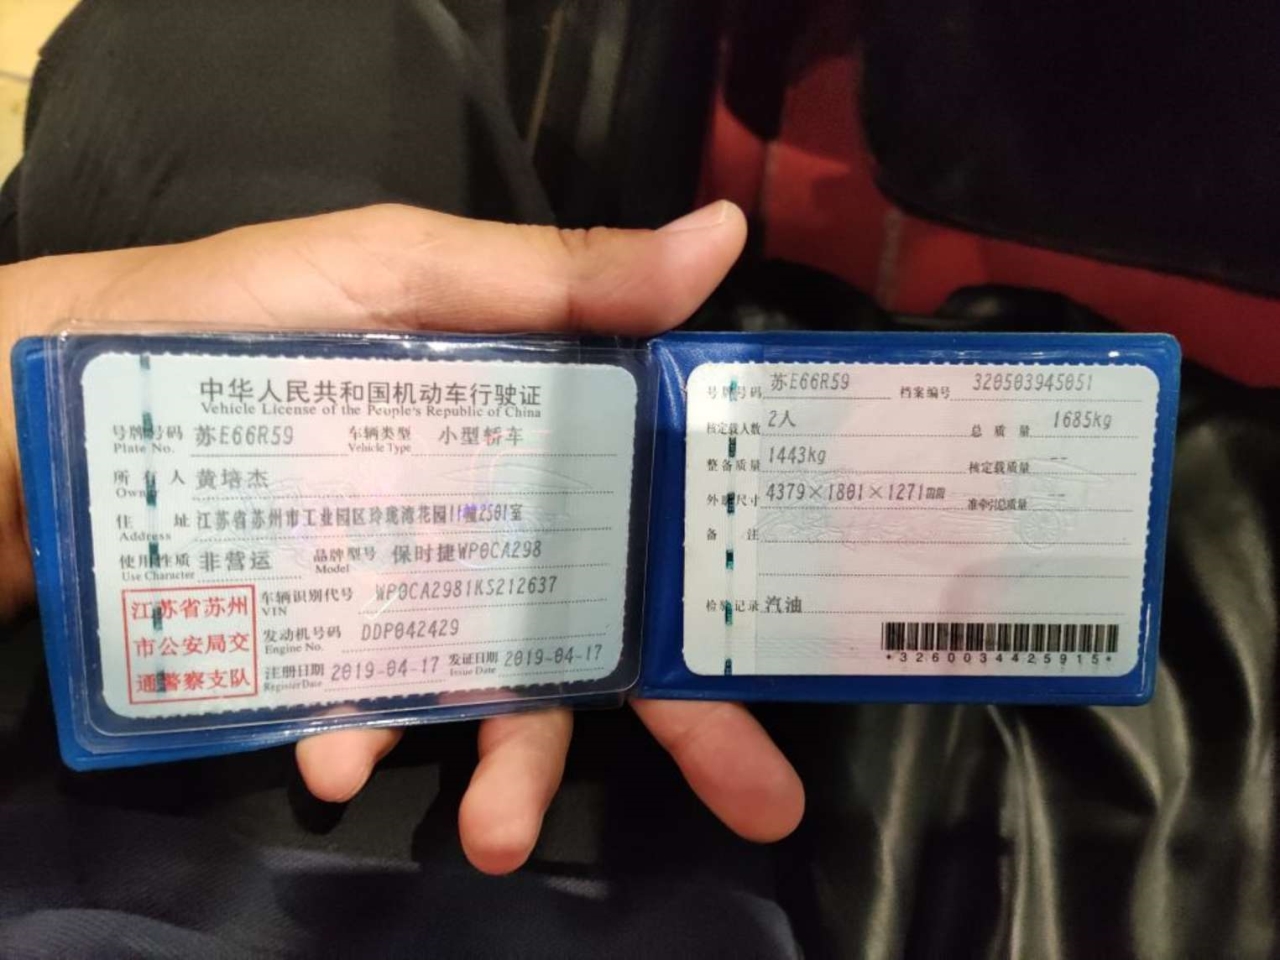 中华人民共和国机动车行驶证
Vehicle License of the People's Republic of China
号牌号码 苏E66R59 车辆类型 小型轿车
Plate No. Vehicle Type
所有人 黄培杰
Owner
住址 江苏省苏州市工业园区玲珑湾花园11幢2501室
Address
使用性质 非营运 品牌型号 保时捷WP0CA298
Use Character Model
江苏省苏州
市公安局交
通警察支队
车辆识别代号 WP0CA2981KS212637
VIN
发动机号码 DDP042429
Engine No.
注册日期 2019-04-17 发证日期 2019-04-17
Register Date Issue Date
号牌号码 苏E66R59 档案编号 320503945051
核定载人数 2人 总质量 1685kg
整备质量 1443kg 核定载质量 --
外廓尺寸 4379×1801×1271mm 准牵引总质量 --
备注
检验记录 汽油
*3260034425915*